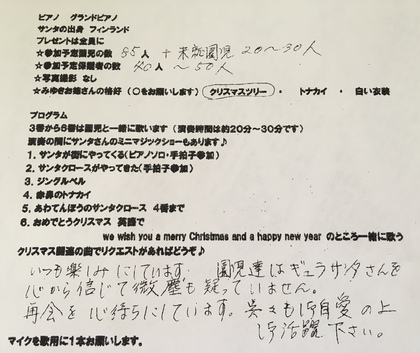 ピアノ　グランドピアノ
サンタの出身　フィンランド
プレゼントは全員に
☆参加予定園児の数　85人　＋未就園児　20〜30人
☆参加予定保護者の数　40人　〜50人
☆写真撮影　なし
☆みゆきお姉さんの格好（〇をお願いします）クリスマスツリー・　トナカイ　・　白い衣装
プログラム
3番から6番は園児と一緒に歌います（演奏時間は約20分〜30分です）
演奏の間にサンタさんのミニマジックショーもあります♪
1. サンタが街にやってくる（ピアノソロ・手拍子参加）
2. サンタクロースがやってきた（手拍子参加）
3. ジングルベル
4. 赤鼻のトナカイ
5. あわてんぼうのサンタクロース　4番まで
6. おめでとうクリスマス　英語で
we wish you a merry Christmas and a happy new year のところ一緒に歌う
クリスマス関連の曲でリクエストがあればどうぞ♪
いつも楽しみにしています。　園児達はギュラサンタさんを
心から信じて微塵も疑っていません。
再会を心待ちにしています。呉々も御自愛の上
御活躍下さい。
マイクを歌用に1本お願いします。